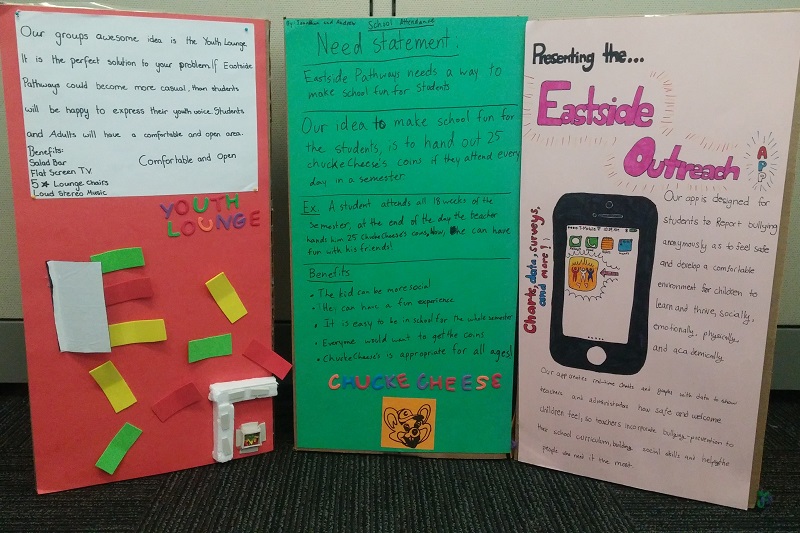 Our groups awesome idea is the Youth Lounge
It is the perfect solution to your problem. If Eastside
Pathways could become more casual, than students
will be happy to express their youth voice. Students
and Adults will have a comfortable and open area.
Benefits:
Salad Bar
Flat Screen T.V.
5★ Lounge Chairs
Loud Stereo Music
Comfortable and Open
YOUTH
LOUNGE
By: Jonathan and Andrew
School Attendance
Need statement:
Eastside Pathways needs a way to
make school fun for students
Our idea to make school fun for
the students, is to hand out 25
chuckeCheese's coins if they attend every
day in a semester.
Ex. A student attends all 18 weeks of the
semester, at the end of the day the teacher
hands him 25 ChuckeCheese's coins, Now, he can have
fun with his friends!
Benefits
• The kid can be more social
• He can have a fun experience
• It is easy to be in school for the whole semester
• Everyone would want to get the coins
• ChuckeCheese's is appropriate for all ages!
CHUCKE CHEESE
Presenting the...
Eastside
Outreach
APP
Charts, data, surveys,
and more!
T-Mobile
Our app is designed for
students to Report bullying
anonymously as to feel safe
and develop a comfortable
environment for children to
learn and thrive, socially,
emotionally, physically,
and academically.
Our app creates real-time charts and graphs with data to show
teachers and administrators how safe and welcome
children feel, so teachers incorporate bullying-prevention to
their school curriculum, building social skills and helping the
people who need it the most.